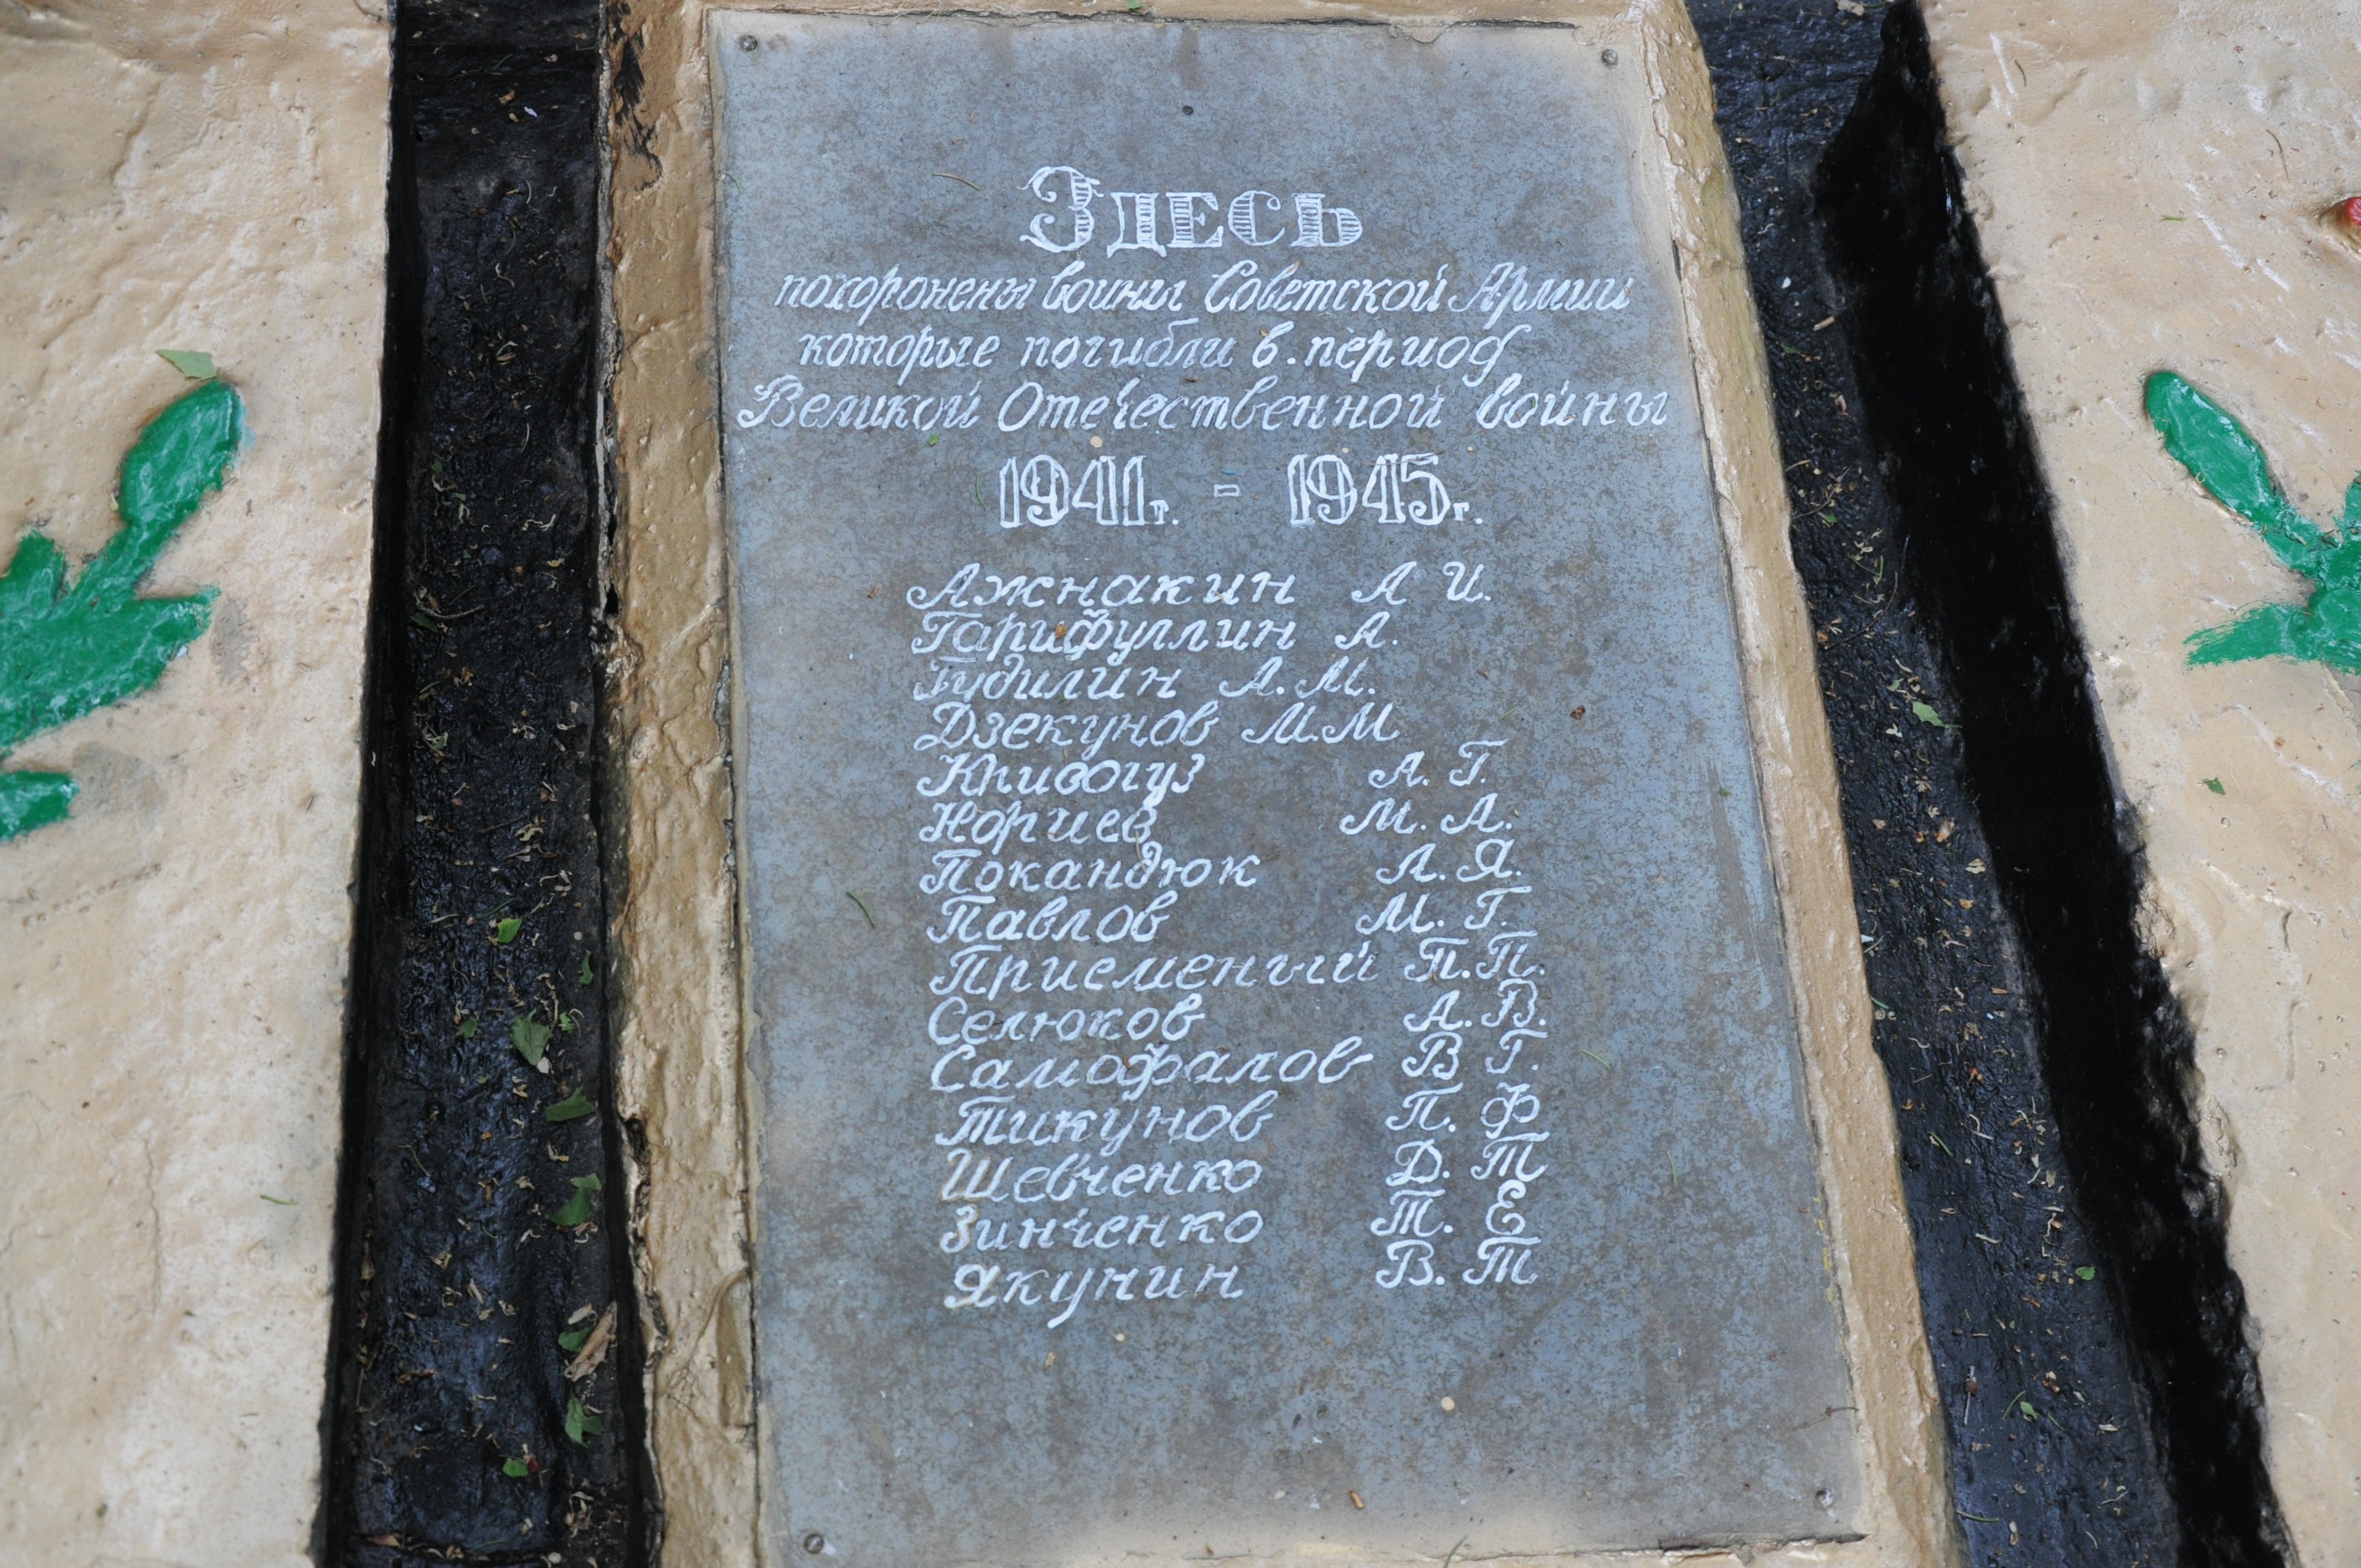 Здесь
похоронены воины Советской Армии
которые погибли в. период
Великой Отечественной войны
1941г. - 1945г.
Ажнакин А И.
Гарифуллин А.
Гудилин А. М.
Дзекунов М.М
Кривогуз А. Г.
Нориев М. А.
Покандюк А. Я.
Павлов М. Г.
Присменый П.П.
Селюков А. В.
Самофалов В Г.
Тикунов П. Ф
Шевченко Д. Т
Зинченко Т. Е
Якунин В. Т